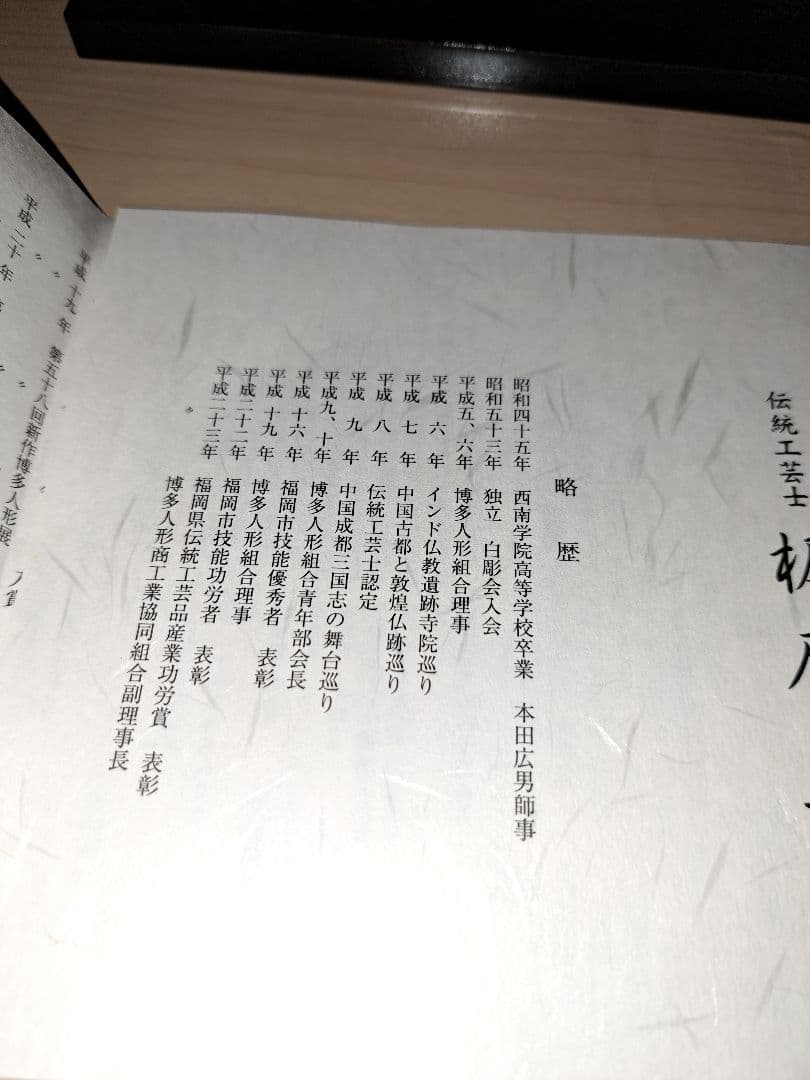 伝統工芸士
略歴
昭和四十五年 西南学院高等学校卒業 本田広男師事
昭和五十三年 独立 白彫会入会
平成五、六年 博多人形組合理事
平成 六 年 インド仏教遺跡寺院巡り
平成 七 年 中国古都と敦煌仏跡巡り
平成 八 年 伝統工芸士認定
平成 九 年 中国成都三国志の舞台巡り
平成九、十年 博多人形組合青年部会長
平成 十六 年 福岡市技能優秀者 表彰
平成 十九 年 博多人形組合理事
平成二十二年 福岡市技能功労者 表彰
平成二十三年 福岡県伝統工芸品産業功労賞 表彰
〃 博多人形商工業協同組合副理事長
平成 十九 年 第五十八回新作博多人形展 入賞
〃 〃
平成 二十 年